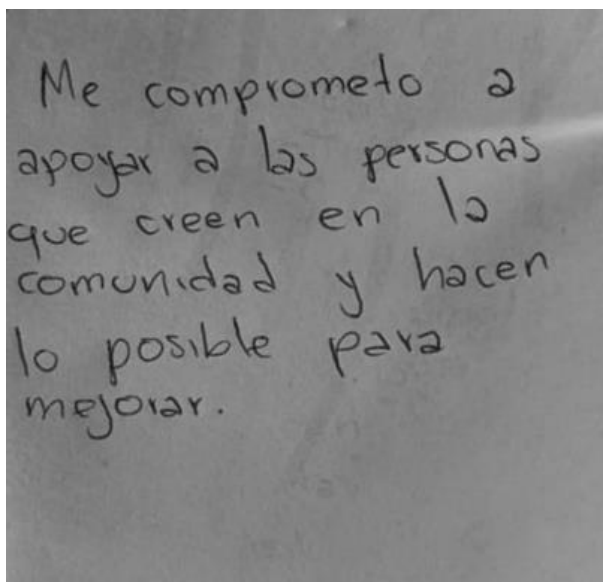 Me comprometo a
apoyar a las personas
que creen en la
comunidad y hacen
lo posible para
mejorar.